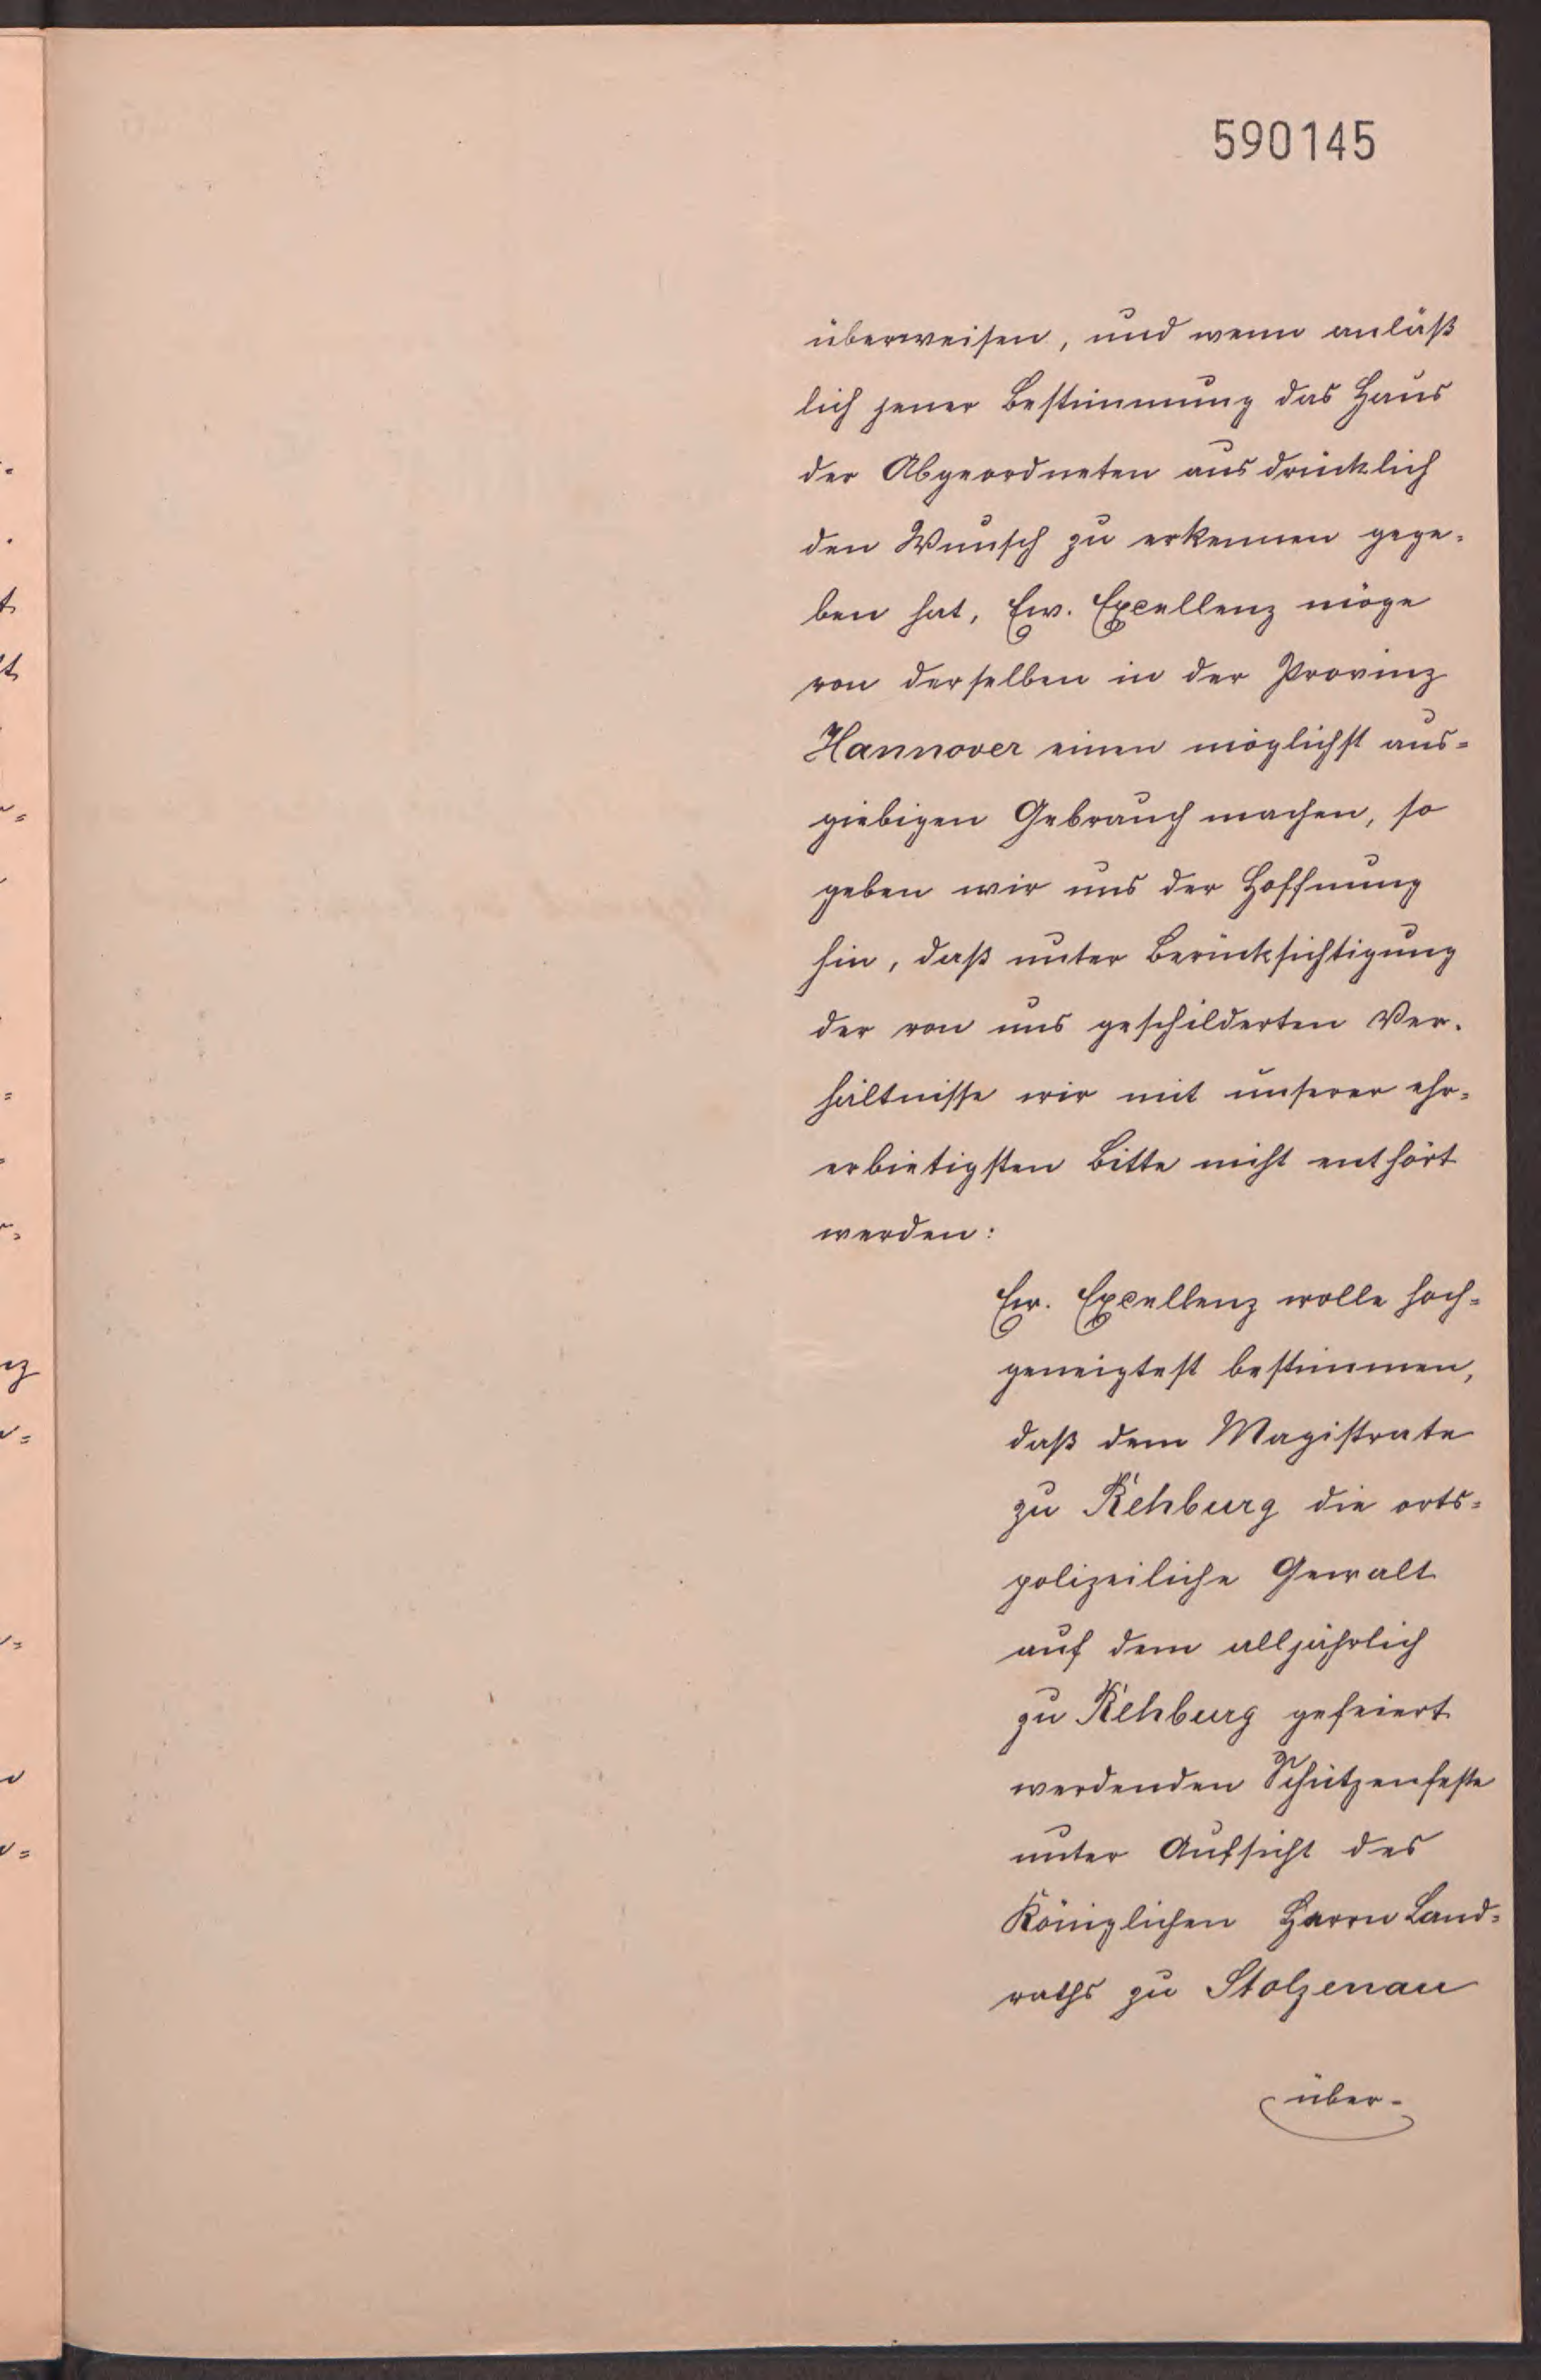 590145
überweisen, und wenn anläß
lich jener Bestimmung das Haus
der Abgeordneten ausdrücklich
den Wunsch zu erkennen gege-
ben hat, Ew. Excellenz möge
von derselben in der Provinz
Hannover einen möglichst aus=
giebigen Gebrauch machen, so
geben wir uns der Hoffnung
hin, daß unter Berücksichtigung
der von uns geschilderten Ver-
hältnisse wir mit unserer ehr=
erbietigsten Bitte nicht enthört
werden:
Ew. Excellenz wolle hoch=
geneigtest bestimmen,
daß dem Magistrate
zu Rehburg die orts=
polizeiliche Gewalt
auf dem alljährlich
zu Rehburg gefeiert
werdenden Schützenfeste
unter Aufsicht des
Königlichen Herrn Land=
raths zu Stolzenau
über-